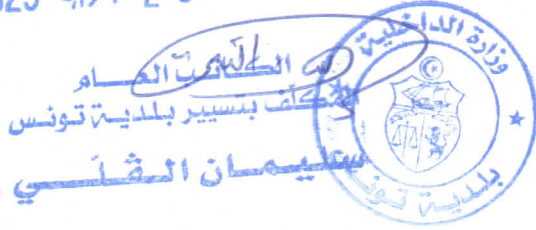 الكاتب العام
المكلف بتسيير بلدية تونس
سليمان القلي
وزارة الداخلية
بلدية تونس